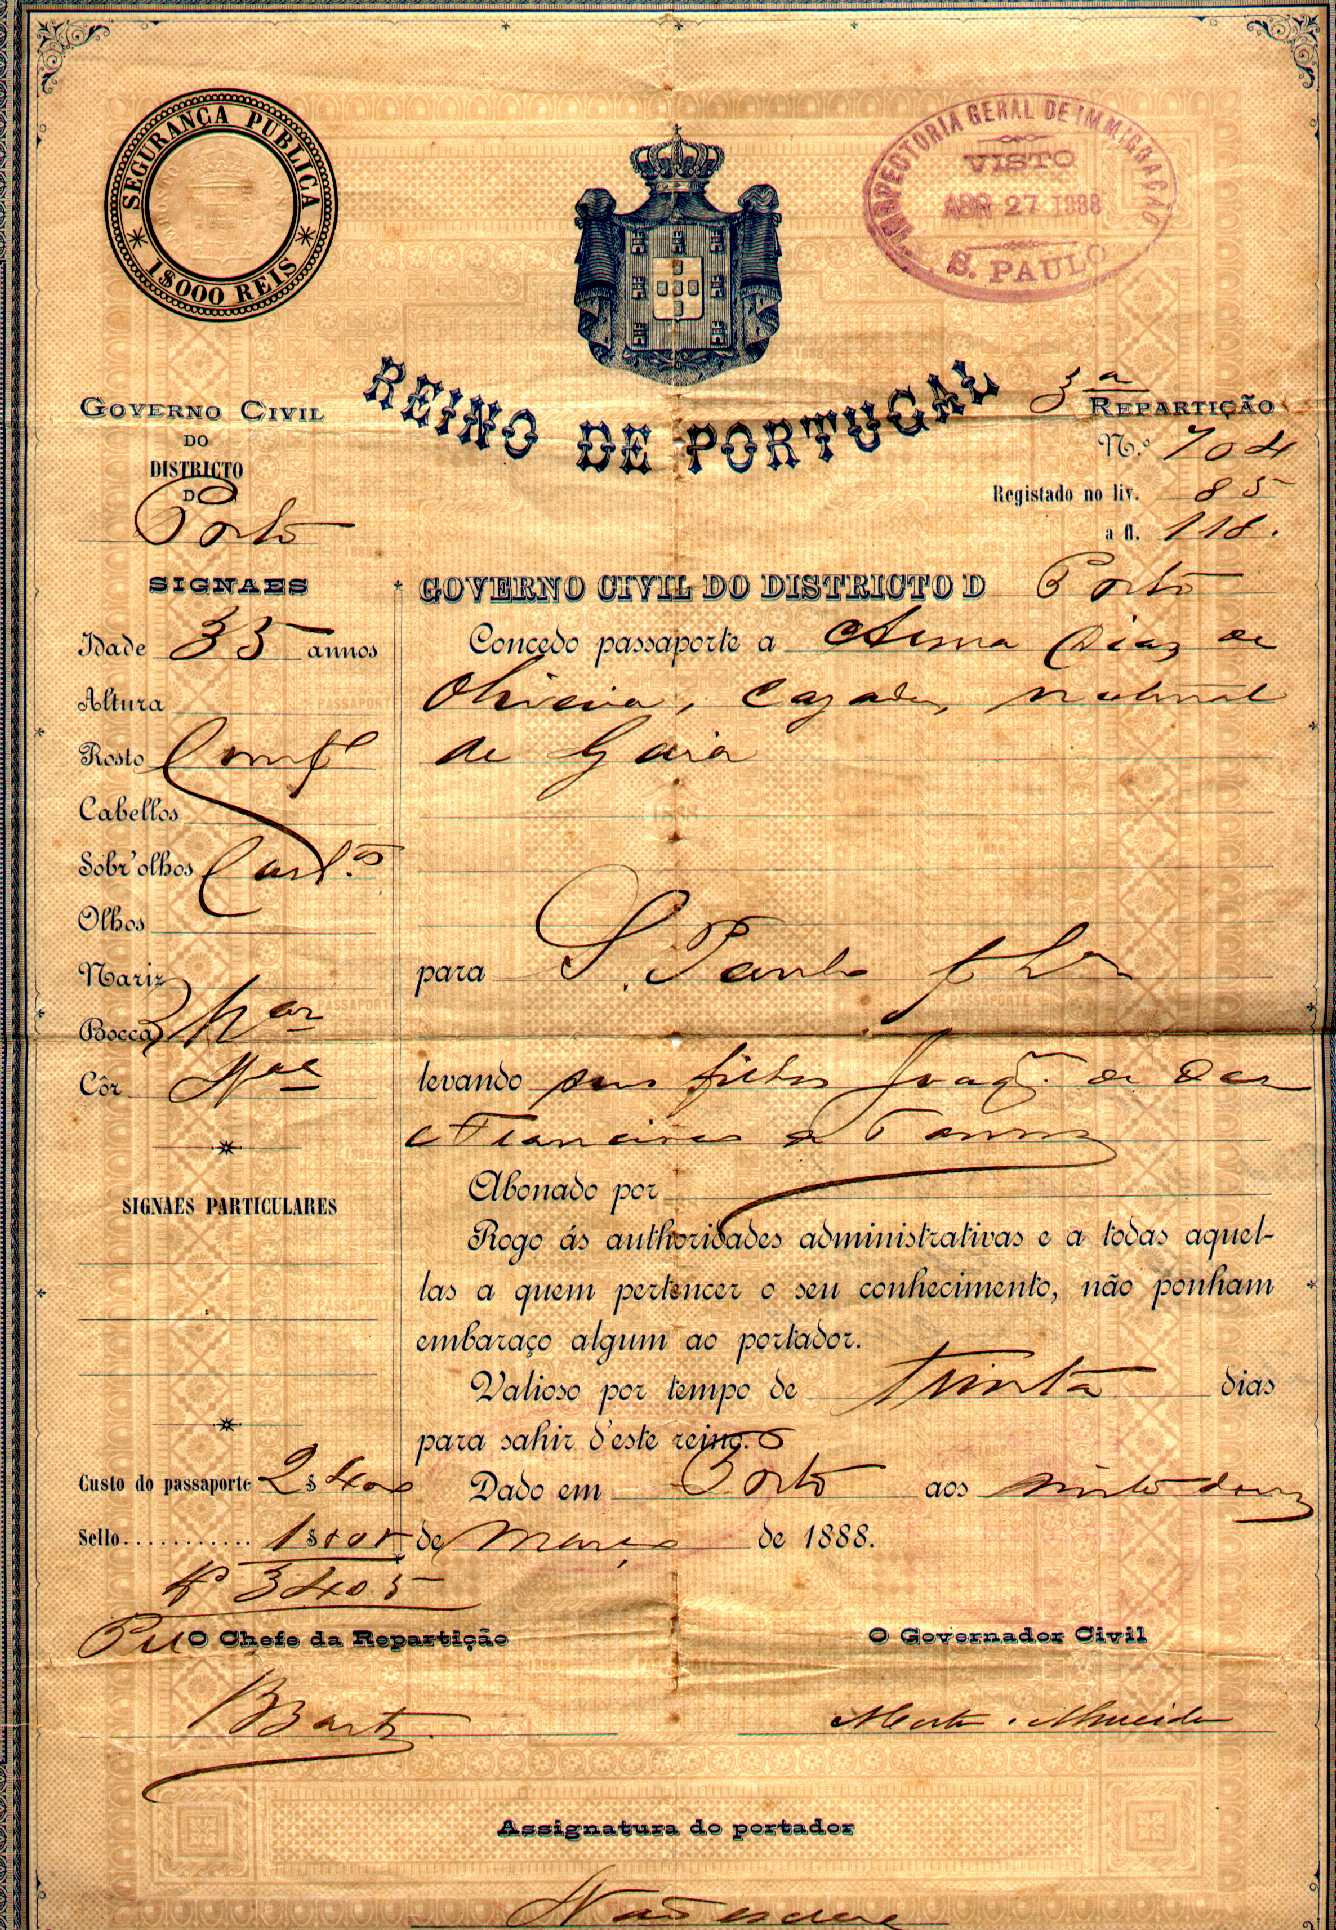 SEGURANÇA PUBLICA
1$000 REIS
INSPECTORIA GERAL DE IMMIGRAÇÃO
VISTO
ABR 27 1888
S. PAULO
REINO DE PORTUGAL
GOVERNO CIVIL
DO
DISTRICTO
DO
Porto
3ª REPARTIÇÃO
N.º 704
Registado no liv. 85
a fl. 118.
SIGNAES
Idade 35 annos
Altura
Rosto Comp
Cabellos
Sobr'olhos Cast.os
Olhos
Nariz
Bocca
Côr Nal
SIGNAES PARTICULARES
Custo do passaporte 2$400
Sello........... 1$005
3405
GOVERNO CIVIL DO DISTRICTO D Porto
Concedo passaporte a Anna Dias de
Oliveira, casada, natural
de Gaia
para S. Paulo
levando seus filhos Joaqm. de
e Francisco
Abonado por
Rogo ás authoridades administrativas e a todas aquel-
las a quem pertencer o seu conhecimento, não ponham
embaraço algum ao portador.
Valioso por tempo de trinta dias
para sahir d'este reino.
Dado em Porto aos vinte
de Março de 1888.
Pelo O Chefe da Repartição
O Governador Civil
Almeida
Assignatura do portador
Não escreve